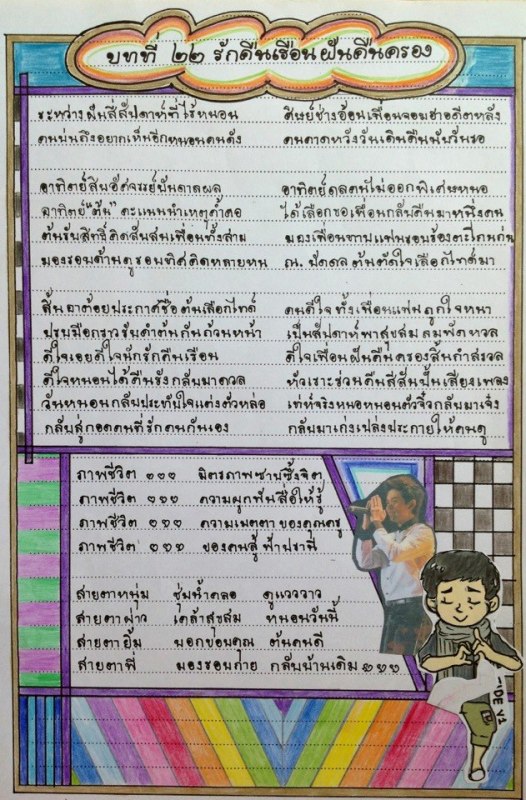 บทที่ ๒๒ รักคืนเรือนฝันคืนครอง
ระหว่างฝนสี่สัปดาห์ที่ไร้หนอน ศิษย์ช่างอ้อนเพื่อนจอมฮาอดีตหลัง
คนบ่นถึงอยากเห็นอีกหนอนคนดัง คนคาดหวังวันเดินคืนนับวันรอ
อาทิตย์สิบอัศจรรย์บันดาลผล อาทิตย์ดลตนไม่ออกพิเศษหนอ
อาทิตย์"ต้น"คะแนนนำเหตุค้ำคอ ได้เลือกขอเพื่อนกลับคืนมาหนึ่งคน
ต้นรับสิทธิ์คิดสับสนเพื่อนทั้งสาม มองเพื่อนยามแฟนรอบร้องตะโกนก่น
มองรอบด้านดูรอบทิศคิดหลายหน ณ. บัดดลต้นตัดใจเลือกไทด์มา
สิ้นอาต้อยประกาศชื่อต้นเลือกไทด์ คนดีใจทั้งเพื่อนแฟนถูกใจหนา
ปรบมือกราวรับคำต้นกันถ้วนหน้า เป็นสัปดาห์พาสุขสมลมพัดหวล
ดีใจเอยดีใจนักรักคืนเรือน ดีใจเพื่อนฝันคืนครองสิ้นกำสรวล
ดีใจหนอนได้คืนรังกลับมาควล หัวเราะร่วนคืนสีสันปั้นเสียงเพลง
วันหนอนกลับประทับใจแต่งตัวหล่อ เท่ห์จริงหนอหนอนตัวจิ๋วกลับมาเจ๋ง
กลับสู่กอดคนที่รักคนกันเอง กลับมาเก่งเปล่งประกายให้คนดู
ภาพชีวิต ๑๑๑ มิตรภาพซาบซึ้งจิต
ภาพชีวิต ๑๑๑ ความผูกพันสื่อให้รู้
ภาพชีวิต ๑๑๑ ความเมตตาของคุณครู
ภาพชีวิต ๑๑๑ ของคนสู้ ฟ้าปรานี
สายตาหนุ่ม ชุ่มน้ำคลอ ดูแวววาว
สายตาฝาว เคล้าสุขสม หนอนวันนี้
สายตายิ้ม บอกขอบคุณ ต้นคนดี
สายตาพี่ มองรอบกาย กลับบ้านเดิม ๑๑๑